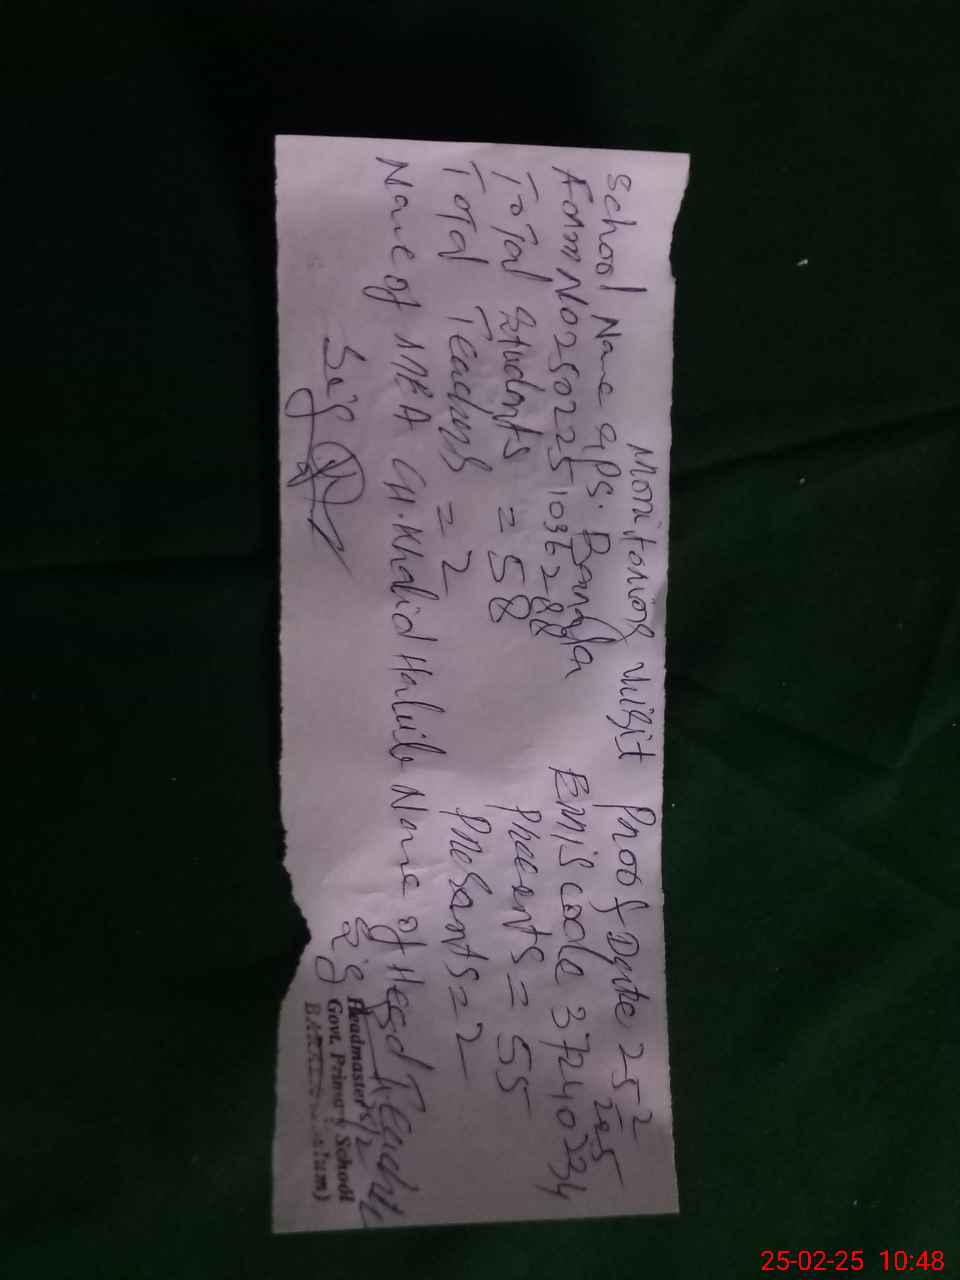 Monitoring visit Proof Date 25-2-25
School Name GPS. Bangla
Form No 2502251036288 Emis code 37240234
Total Students = 58 Phesents = 55
Total Teachers = 2 Phesants = 2
Name of MEA CH. Khalid Habib Name of Head Teacher
Sig Sig
Headmaster
Govt. Primary School
25-02-25 10:48